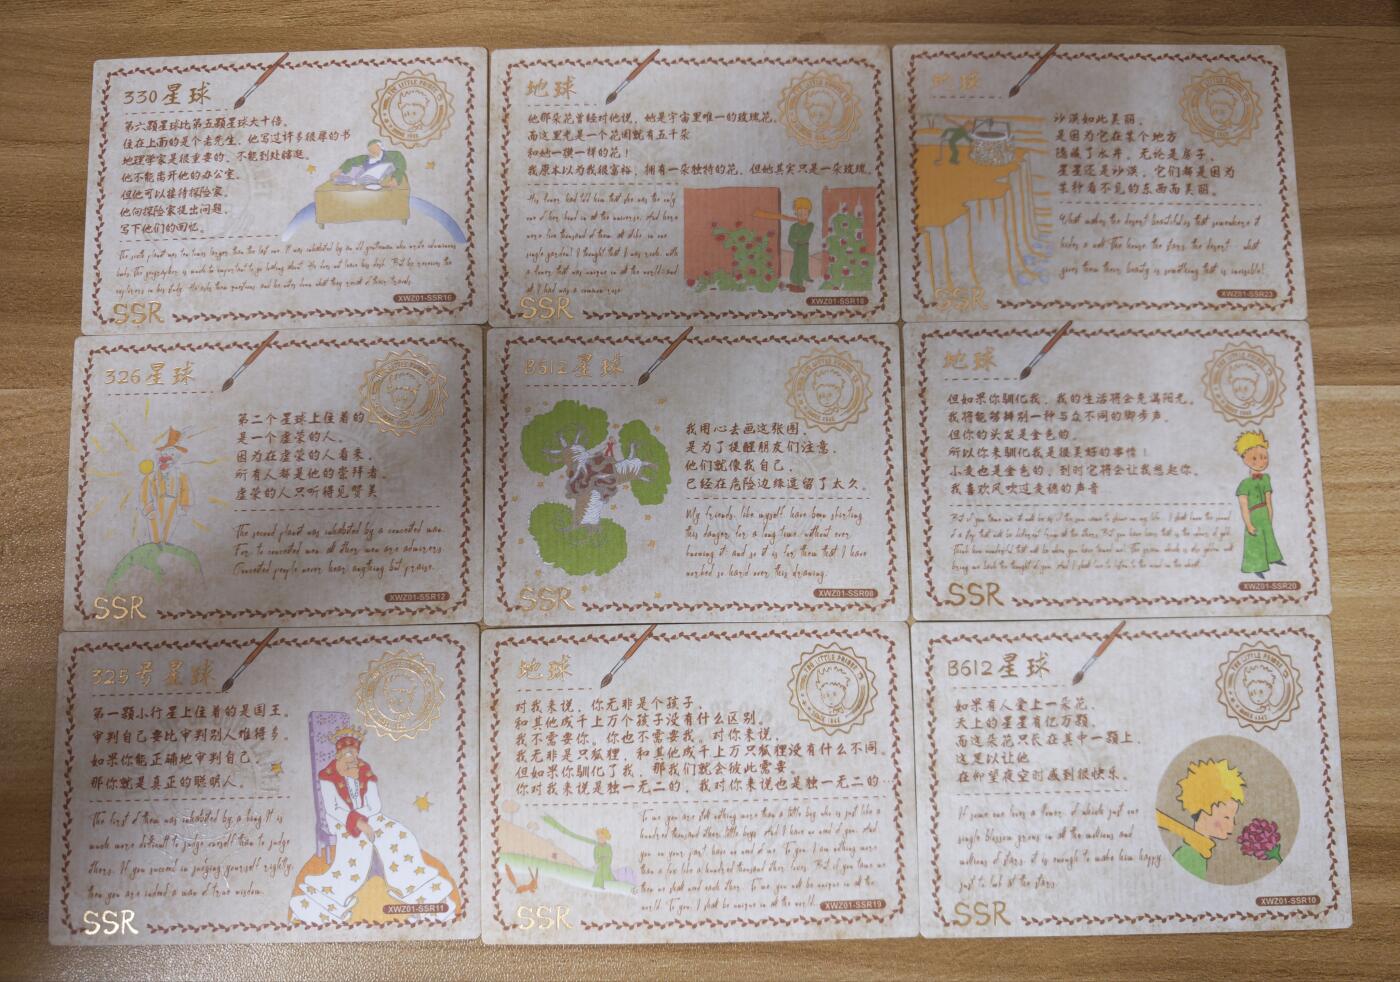 330星球
THE LITTLE PRINCE
SINCE 1943
第六颗星球比第五颗星球大十倍。
住在上面的是个老先生，他写过许多很厚的书
地理学家是很重要的，不能到处瞎逛。
他不能离开他的办公室。
但他可以接待探险家。
他向探险家提出问题，
写下他们的回忆。
The sixth planet was ten times larger than the last one. It was inhabited by an old gentleman who wrote
SSR
XWZ01-SSR16
地球
他那朵花曾经对他说，她是宇宙里唯一的玫瑰花。
而这里光是一个花园就有五千朵
和她一模一样的花！
我原本以为我很富裕，拥有一朵独特的花，但她其实只是一朵玫瑰。
His flower had told him that she was the only
one of her kind in all the universe. And here
were five thousand of them, all alike, in one
single garden! I thought that I was rich, with
a flower that was unique in all the world; and
all I had was a common rose.
SSR
XWZ01-SSR18
地球
沙漠如此美丽，
是因为它在某个地方
隐藏了水井，无论是房子，
星星还是沙漠，它们都是因为
某种看不见的东西而美丽。
What makes the desert beautiful is that somewhere it
hides a well. The house, the stars, the desert what
gives them their beauty is something that is invisible!
SSR
XWZ01-SSR23
326星球
第二个星球上住着的
是一个虚荣的人。
因为在虚荣的人看来，
所有人都是他的崇拜者。
虚荣的人只听得见赞美
The second planet was inhabited by a conceited man.
For, to conceited men, all other men are admirers.
Conceited people never hear anything but praise.
SSR
XWZ01-SSR12
B612星球
我用心去画这张图，
是为了提醒朋友们注意，
他们就像我自己，
已经在危险边缘逗留了太久。
My friends, like myself, have been skirting
this danger for a long time, without ever
knowing it; and so it is for them that I have
worked so hard over this drawing.
SSR
XWZ01-SSR08
地球
但如果你驯化我，我的生活将会充满阳光。
我将能够辨别一种与众不同的脚步声。
但你的头发是金色的，
所以你来驯化我是很美好的事情！
小麦也是金色的，到时它将会让我想起你。
我喜欢风吹过麦穗的声音
SSR
XWZ01-SSR20
325号星球
第一颗小行星上住着的是国王。
审判自己要比审判别人难得多。
如果你能正确地审判自己，
那你就是真正的聪明人。
The first of them was inhabited by a king. It is
much more difficult to judge oneself than to judge
others. If you succeed in judging yourself rightly,
then you are indeed a man of true wisdom.
SSR
XWZ01-SSR11
地球
对我来说，你无非是个孩子，
和其他成千上万个孩子没有什么区别。
我不需要你。你也不需要我。对你来说，
我无非是只狐狸，和其他成千上万只狐狸没有什么不同。
但如果你驯化了我，那我们就会彼此需要
你对我来说是独一无二的，我对你来说也是独一无二的…
To me, you are still nothing more than a little boy who is just like a
hundred thousand other little boys. And I have no need of you. And
you, on your part, have no need of me. To you, I am nothing more
than a fox like a hundred thousand other foxes. But if you tame me,
then we shall need each other. To me, you will be unique in all the
world. To you, I shall be unique in all the world.
SSR
XWZ01-SSR19
B612星球
THE LITTLE PRINCE
SINCE 1943
如果有人爱上一朵花，
天上的星星有亿万颗，
而这朵花只长在其中一颗上，
这足以让他
在仰望夜空时感到很快乐。
If some one loves a flower, of which just one
single blossom grows in all the millions and
millions of stars, it is enough to make him happy
just to look at the stars.
SSR
XWZ01-SSR10